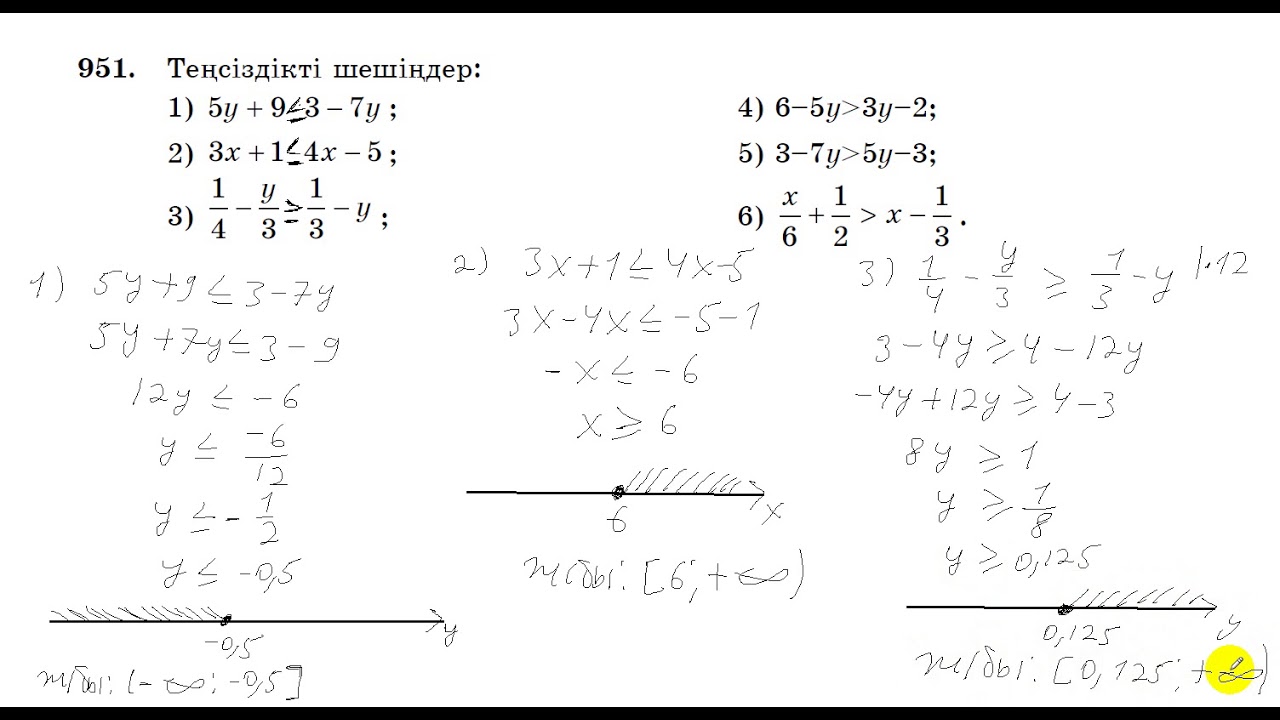 951. Теңсіздікті шешіңдер:
1) 5y + 9 ≤ 3 − 7y ;
2) 3x + 1 ≤ 4x − 5 ;
3) 1/4 − y/3 ≥ 1/3 − y ;
4) 6−5y>3y−2;
5) 3−7y>5y−3;
6) x/6 + 1/2 > x − 1/3 .
1) 5y + 9 ≤ 3 − 7y
5y + 7y ≤ 3 − 9
12y ≤ −6
y ≤ −6/12
y ≤ − 1/2
y ≤ −0,5
−0,5 y
Ж/бы: (−∞; −0,5]
2) 3x + 1 ≤ 4x − 5
3x − 4x ≤ −5 − 1
− x ≤ −6
x ≥ 6
6 x
Ж/бы: [6; +∞)
3) 1/4 − y/3 ≥ 1/3 − y |·12
3 − 4y ≥ 4 − 12y
−4y + 12y ≥ 4 − 3
8y ≥ 1
y ≥ 1/8
y ≥ 0,125
0,125 y
Ж/бы: [0,125; +∞)